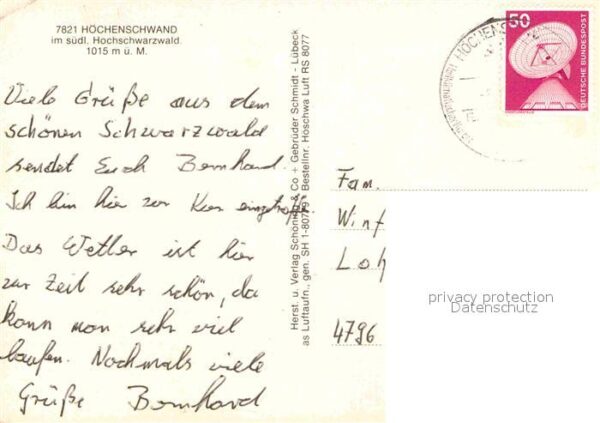 7821 HÖCHENSCHWAND
im südl. Hochschwarzwald
1015 m ü. M.
Viele Grüße aus dem
schönen Schwarzwald
sendet Euch Bernhard.
Ich bin hier zur Kur eingetroffen.
Das Wetter ist hier
zur Zeit sehr schön, da
kann man sehr viel
laufen. Nochmals viele
Grüße Bernhard
Herst. u. Verlag Schöning & Co + Gebrüder Schmidt - Lübeck
as Luftaufn., gen. SH 1-807/9 * Bestellnr. Höschwa Luft RS 8077
50
DEUTSCHE BUNDESPOST
Fam.
Winf
Loh
4796
privacy protection
Datenschutz